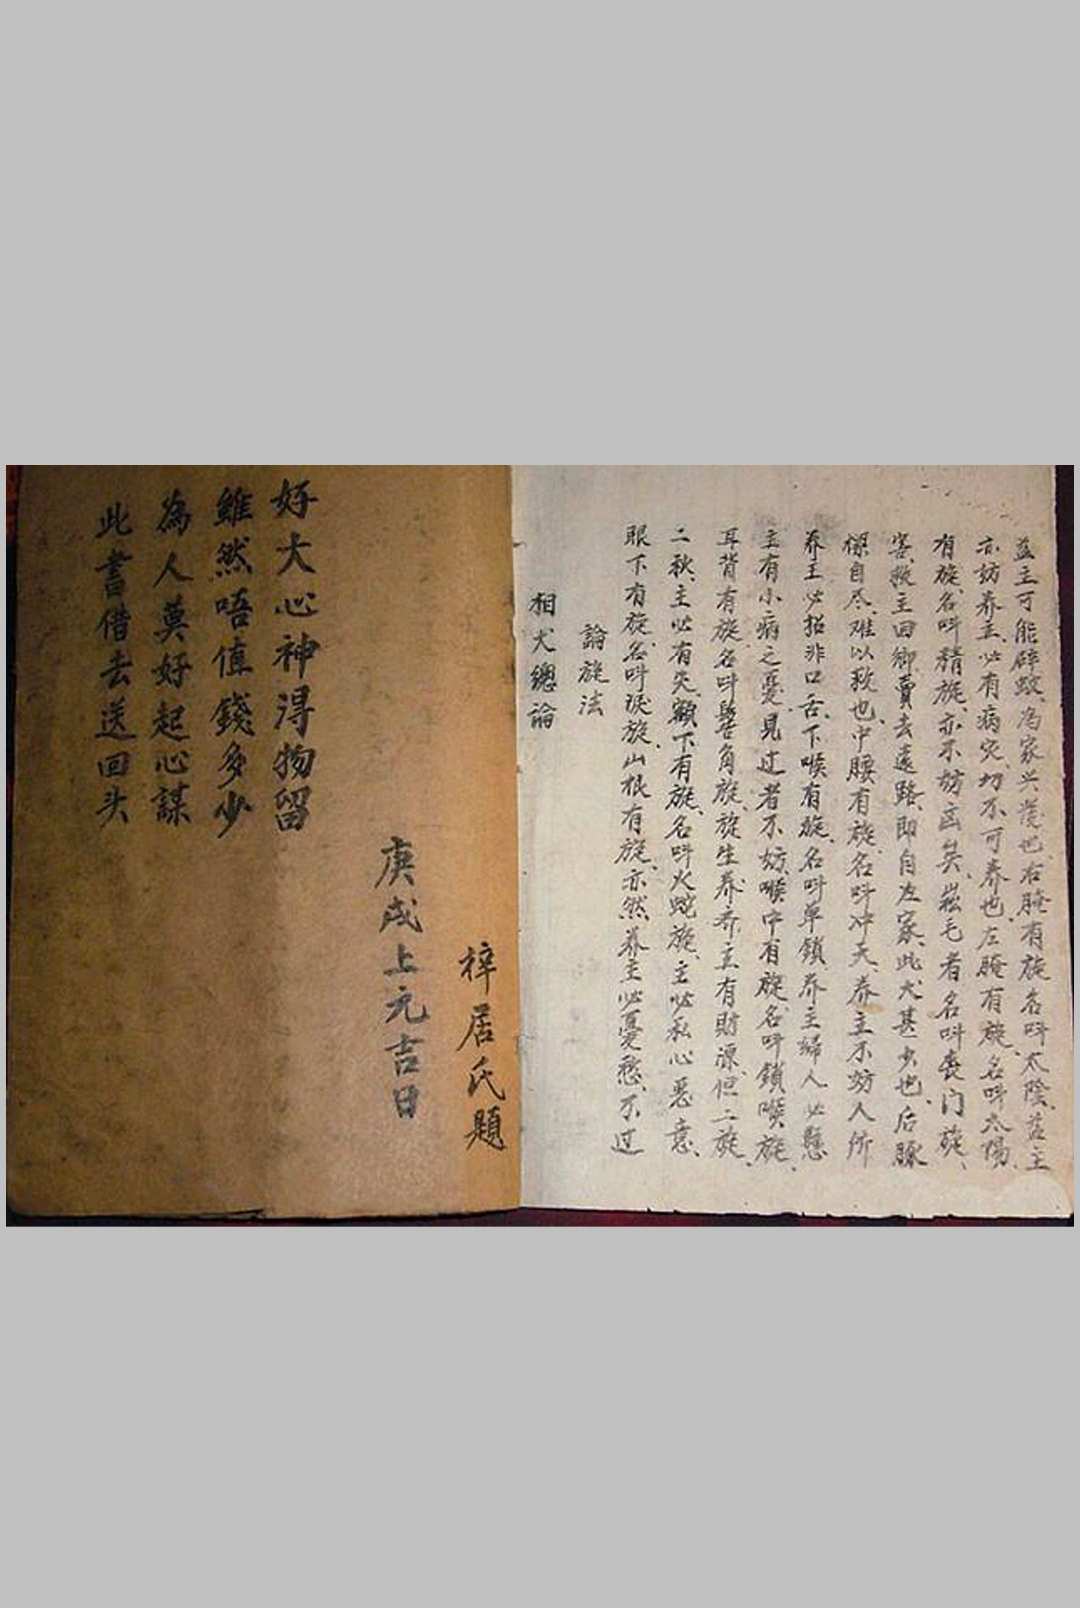 此書借去送回头
為人莫好起心謀
雖然唔值錢多少
好大心神得物留
庚戌上元吉日
梓居氏題
相犬總論
論旋法
眼下有旋名叫淚旋、山根有旋、亦然、养主必憂愁、不过
二秋、主必有失、額下有旋、名叫火蛇旋、主必私心恶意、
耳背有旋、名叫髻角旋、旋生养养主有財源、但二旋、
主有小病之憂、見过者不妨、喉中有旋名叫鎖喉旋、
养主必招非口舌、下喉有旋、名叫单鎖养主婦人必懸
樑自尽、难以救也、中腰有旋名叫冲天、养主不妨人所
害、救主回鄉賣去遠路、即自返家、此犬甚少也、后豚
有旋、名叫精旋、亦不妨凶矣、崧毛者名叫喪门旋、
亦妨养主、必有病灾、切不可养也、左腌有旋、名叫太陽、
益主可能辟蚊、為家兴發也、右腌有旋名叫太陰、益主